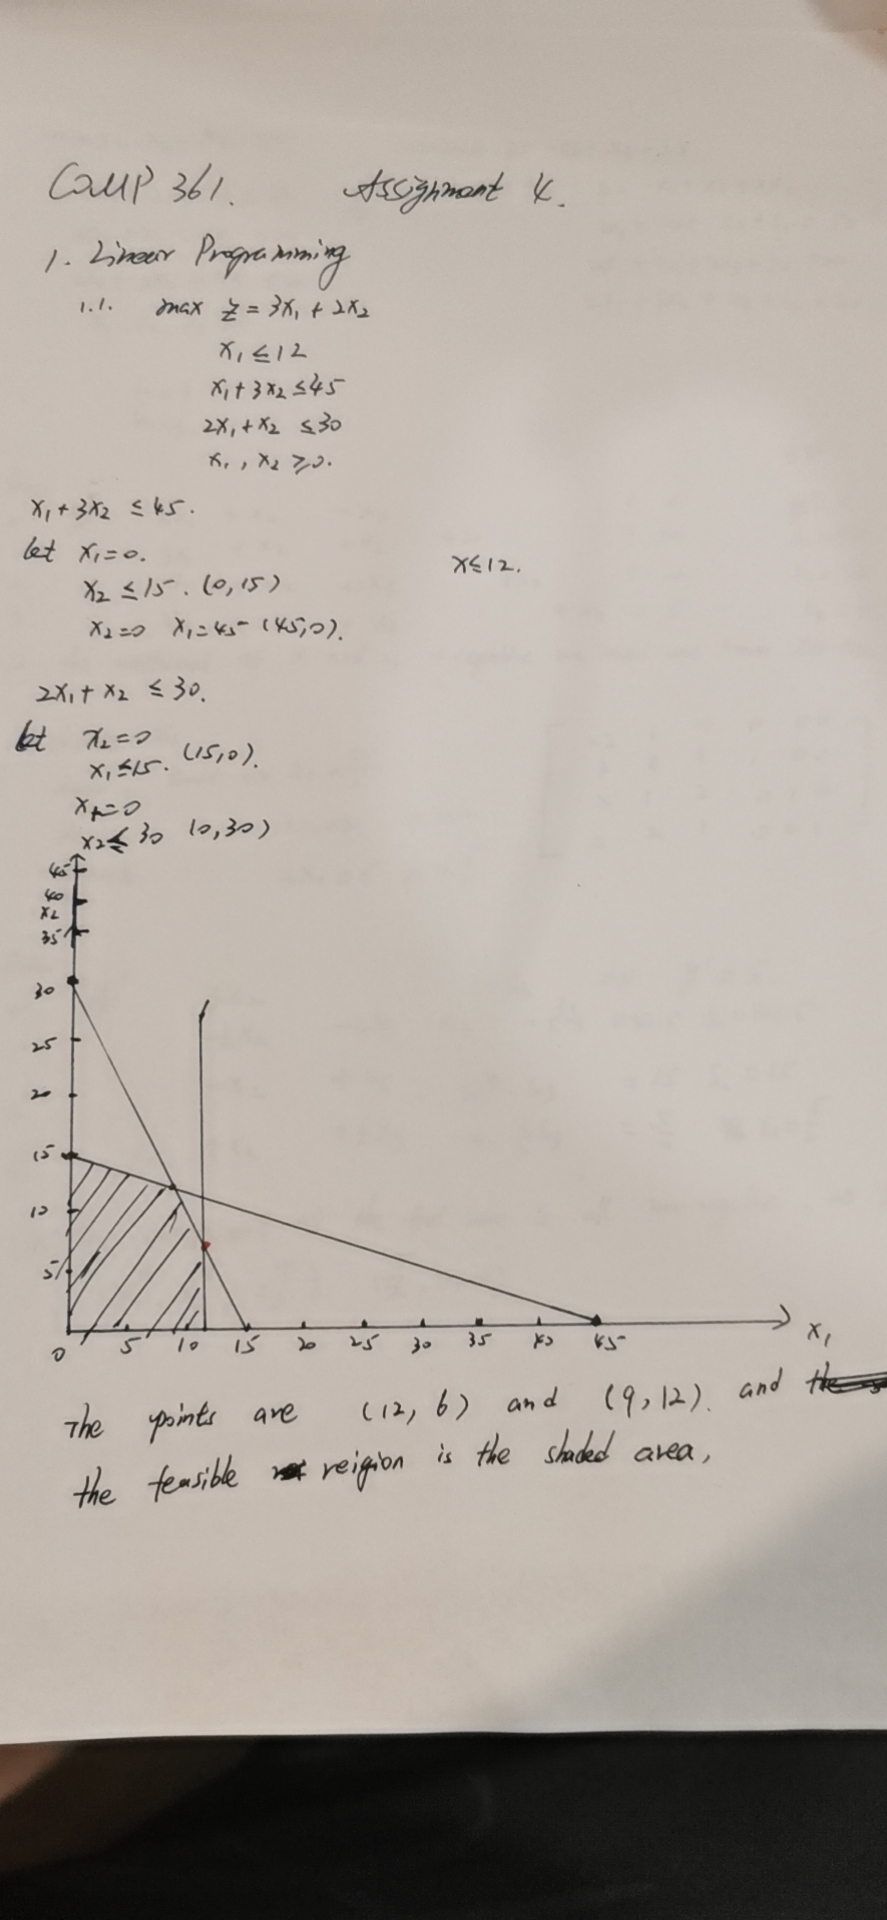 COMP 361. Assignment 4.
1. Linear Programming
1.1. max z = 3x₁ + 2x₂
x₁ ≤ 12
x₁ + 3x₂ ≤ 45
2x₁ + x₂ ≤ 30
x₁, x₂ ≥ 0.
x₁ + 3x₂ ≤ 45.
let x₁ = 0.
x ≤ 12.
x₂ ≤ 15. (0, 15)
x₂ = 0 x₁ = 45 (45, 0).
2x₁ + x₂ ≤ 30.
let x₂ = 0
x₁ ≤ 15. (15, 0).
x₁ = 0
x₂ ≤ 30 (0, 30)
45
40
x₂
35
30
25
20
15
10
5
0 5 10 15 20 25 30 35 40 45 x₁
The points are (12, 6) and (9, 12). and
the feasible reigion is the shaded area,